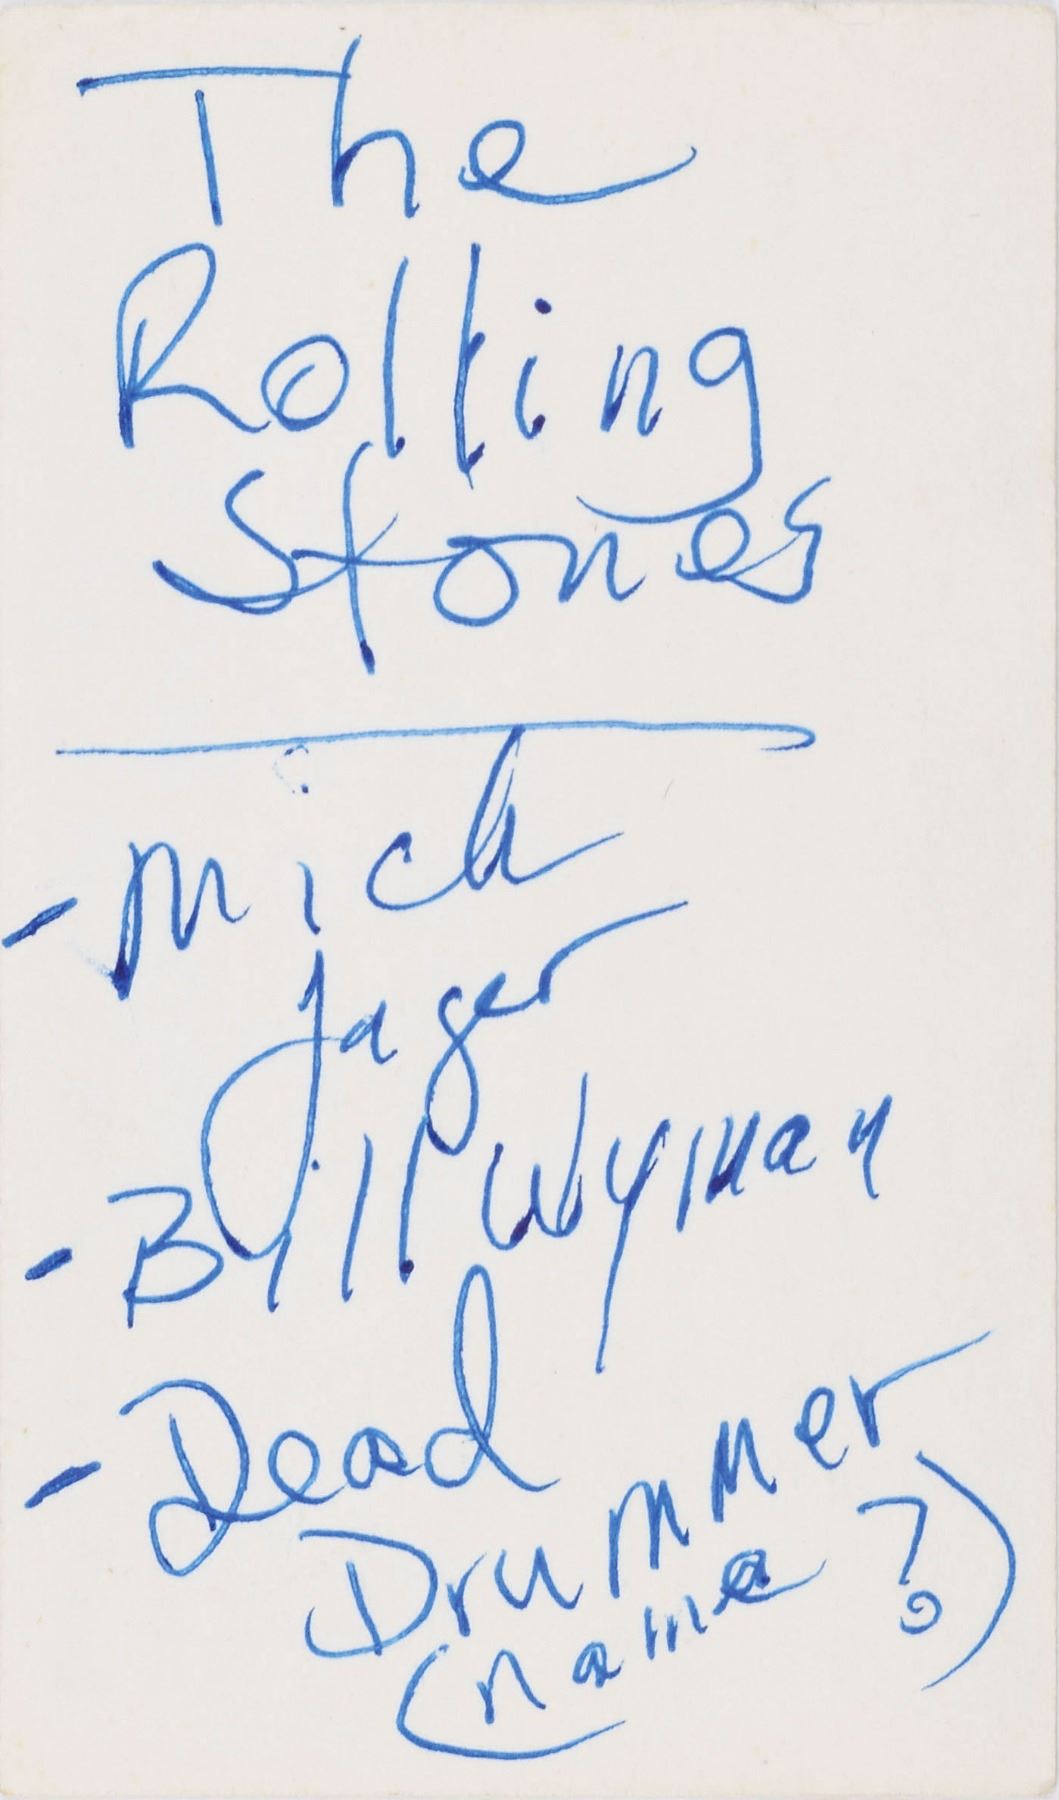 The
Rolling
Stones
- Mick
Jager
- Bill Wyman
- Dead
Drummer
(name?)